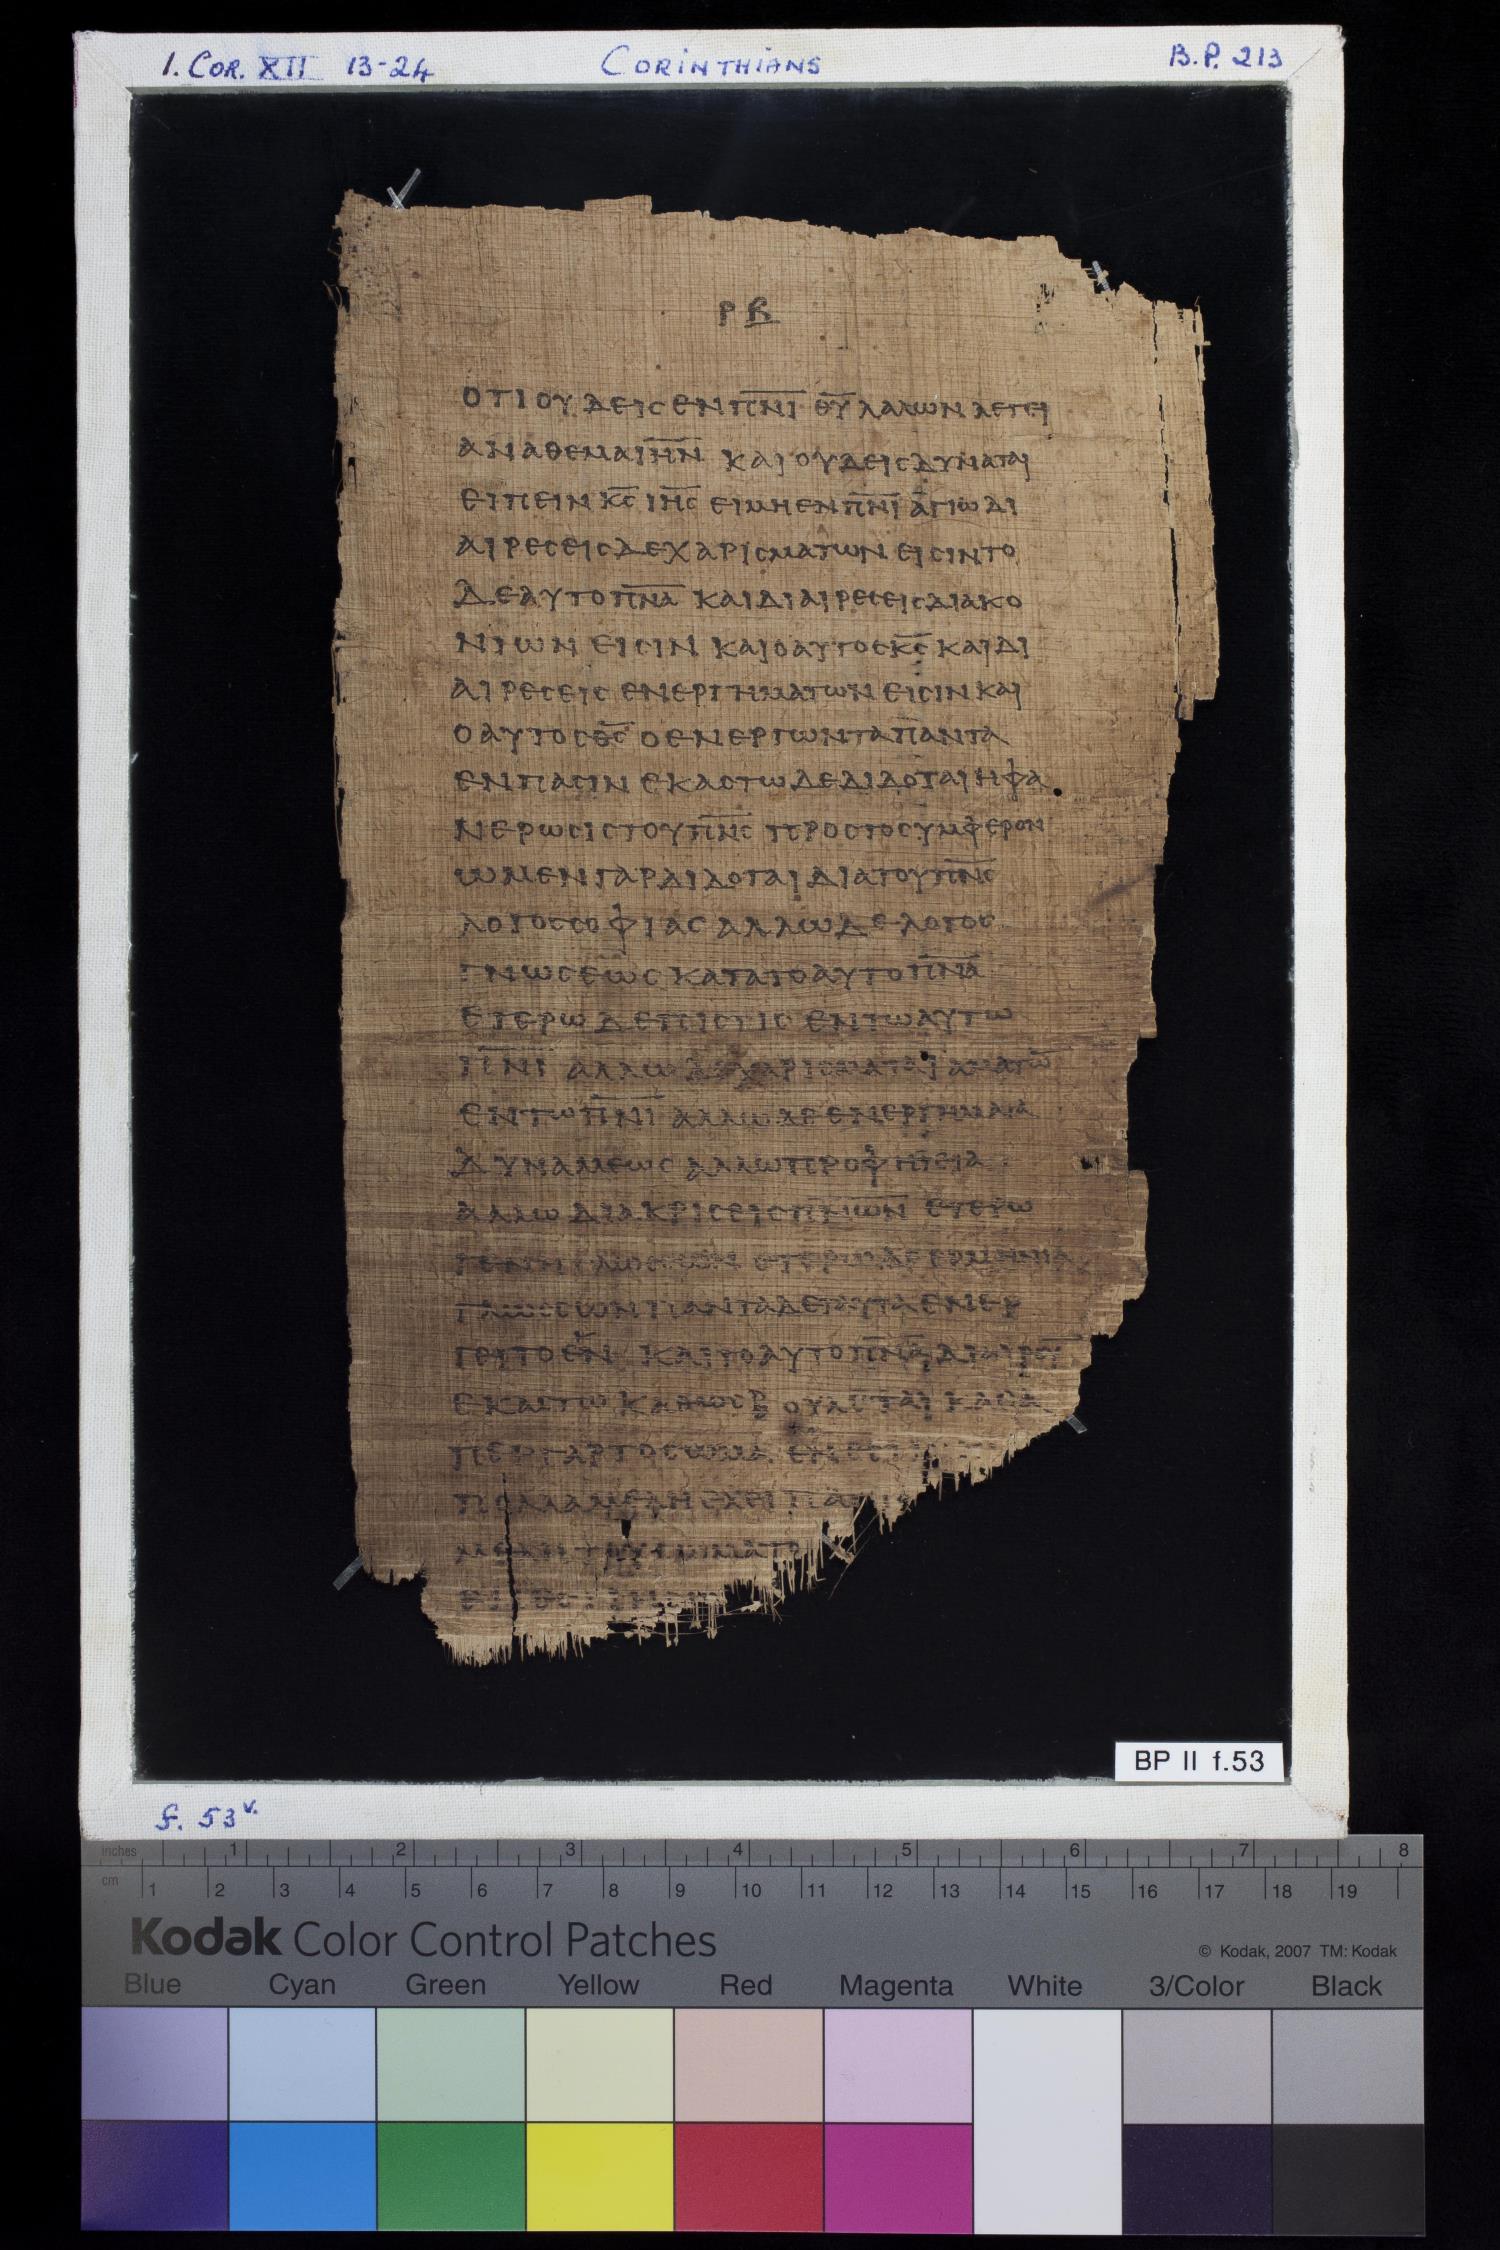 1. COR. XII 13-24 CORINTHIANS B.P. 213
ΡΒ
ΟΤΙ ΟΥΔΕΙΣ ΕΝ ΠΝΙ ΘΥ ΛΑΛΩΝ ΛΕΓΕΙ
ΑΝΑΘΕΜΑ ΙΗΝ ΚΑΙ ΟΥΔΕΙΣ ΔΥΝΑΤΑΙ
ΕΙΠΕΙΝ ΚΣ ΙΗΣ ΕΙ ΜΗ ΕΝ ΠΝΙ ΑΓΙΩ ΔΙ
ΑΙΡΕΣΕΙΣ ΔΕ ΧΑΡΙΣΜΑΤΩΝ ΕΙΣΙΝ ΤΟ
ΔΕ ΑΥΤΟ ΠΝΑ ΚΑΙ ΔΙΑΙΡΕΣΕΙΣ ΔΙΑΚΟ
ΝΙΩΝ ΕΙΣΙΝ ΚΑΙ Ο ΑΥΤΟΣ ΚΣ ΚΑΙ ΔΙ
ΑΙΡΕΣΕΙΣ ΕΝΕΡΓΗΜΑΤΩΝ ΕΙΣΙΝ ΚΑΙ
Ο ΑΥΤΟΣ ΘΣ Ο ΕΝΕΡΓΩΝ ΤΑ ΠΑΝΤΑ
ΕΝ ΠΑΣΙΝ ΕΚΑΣΤΩ ΔΕ ΔΙΔΟΤΑΙ Η ΦΑ
ΝΕΡΩΣΙΣ ΤΟΥ ΠΝΣ ΠΡΟΣ ΤΟ ΣΥΜΦΕΡΟΝ
Ω ΜΕΝ ΓΑΡ ΔΙΔΟΤΑΙ ΔΙΑ ΤΟΥ ΠΝΣ
ΛΟΓΟΣ ΣΟΦΙΑΣ ΑΛΛΩ ΔΕ ΛΟΓΟΣ
ΓΝΩΣΕΩΣ ΚΑΤΑ ΤΟ ΑΥΤΟ ΠΝΑ
ΕΤΕΡΩ ΔΕ ΠΙΣΤΙΣ ΕΝ ΤΩ ΑΥΤΩ
ΠΝΙ ΑΛΛΩ ΔΕ ΧΑΡΙΣΜΑΤΑ ΙΑΜΑΤΩ
ΕΝ ΤΩ ΠΝΙ ΑΛΛΩ ΔΕ ΕΝΕΡΓΗΜΑΤΑ
ΔΥΝΑΜΕΩΣ ΑΛΛΩ ΠΡΟΦΗΤΕΙΑ
ΑΛΛΩ ΔΙΑΚΡΙΣΕΙΣ ΠΝΩΝ ΕΤΕΡΩ
ΓΕΝΗ ΓΛΩΣΣΩΝ ΕΤΕΡΩ ΔΕ ΕΡΜΗΝΙΑ
ΓΛΩΣΣΩΝ ΠΑΝΤΑ ΔΕ ΤΑΥΤΑ ΕΝΕΡ
ΓΕΙ ΤΟ ΕΝ ΚΑΙ ΤΟ ΑΥΤΟ ΠΝΑ ΔΙΑΙΡΟΥ
ΕΚΑΣΤΩ ΚΑΘΩΣ ΒΟΥΛΕΤΑΙ ΚΑΘΑ
ΠΕΡ ΓΑΡ ΤΟ ΣΩΜΑ ΕΝ
ΠΟΛΛΑ ΜΕΛΗ ΕΧΕΙ ΠΑΝ
ΜΕΛΗ ΤΟΥ ΣΩΜΑΤΟ
BP II f.53
f. 53v.
inches 1 2 3 4 5 6 7 8
cm 1 2 3 4 5 6 7 8 9 10 11 12 13 14 15 16 17 18 19
Kodak Color Control Patches © Kodak, 2007 TM: Kodak
Blue Cyan Green Yellow Red Magenta White 3/Color Black